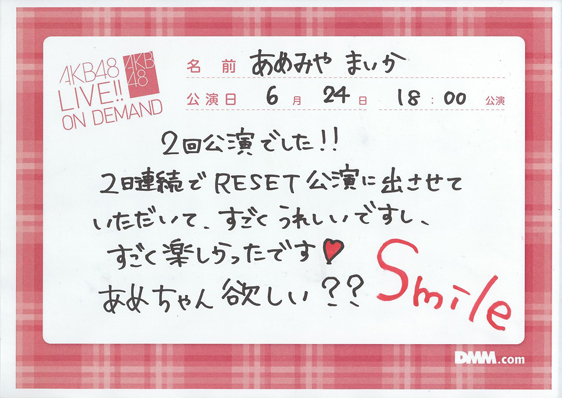 AKB48
LIVE!!
ON DEMAND
AKB
48
名前 あめみや まいか
公演日 6月 24日 18:00 公演
2回公演でした!!
2日連続でRESET公演に出させて
いただいて、すごくうれしいですし、
すごく楽しかったです♥
あめちゃん欲しい??
Smile
DMM.com